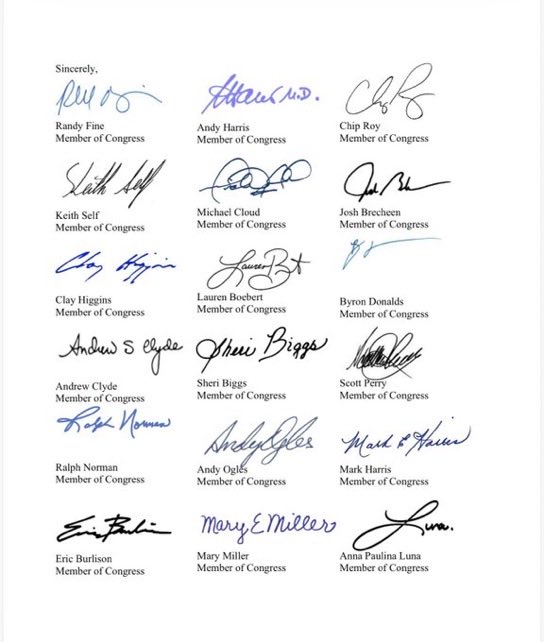 Sincerely,
Randy Fine
Member of Congress
Andy Harris
Member of Congress
Chip Roy
Member of Congress
Keith Self
Keith Self
Member of Congress
Michael Cloud
Member of Congress
Josh Brecheen
Member of Congress
Clay Higgins
Clay Higgins
Member of Congress
Lauren Boebert
Member of Congress
Byron Donalds
Member of Congress
Andrew S Clyde
Andrew Clyde
Member of Congress
Sheri Biggs
Sheri Biggs
Member of Congress
Scott Perry
Member of Congress
Ralph Norman
Ralph Norman
Member of Congress
Andy Ogles
Andy Ogles
Member of Congress
Mark E Harris
Mark Harris
Member of Congress
Eric Burlison
Member of Congress
Mary E Miller
Mary Miller
Member of Congress
Luna.
Anna Paulina Luna
Member of Congress